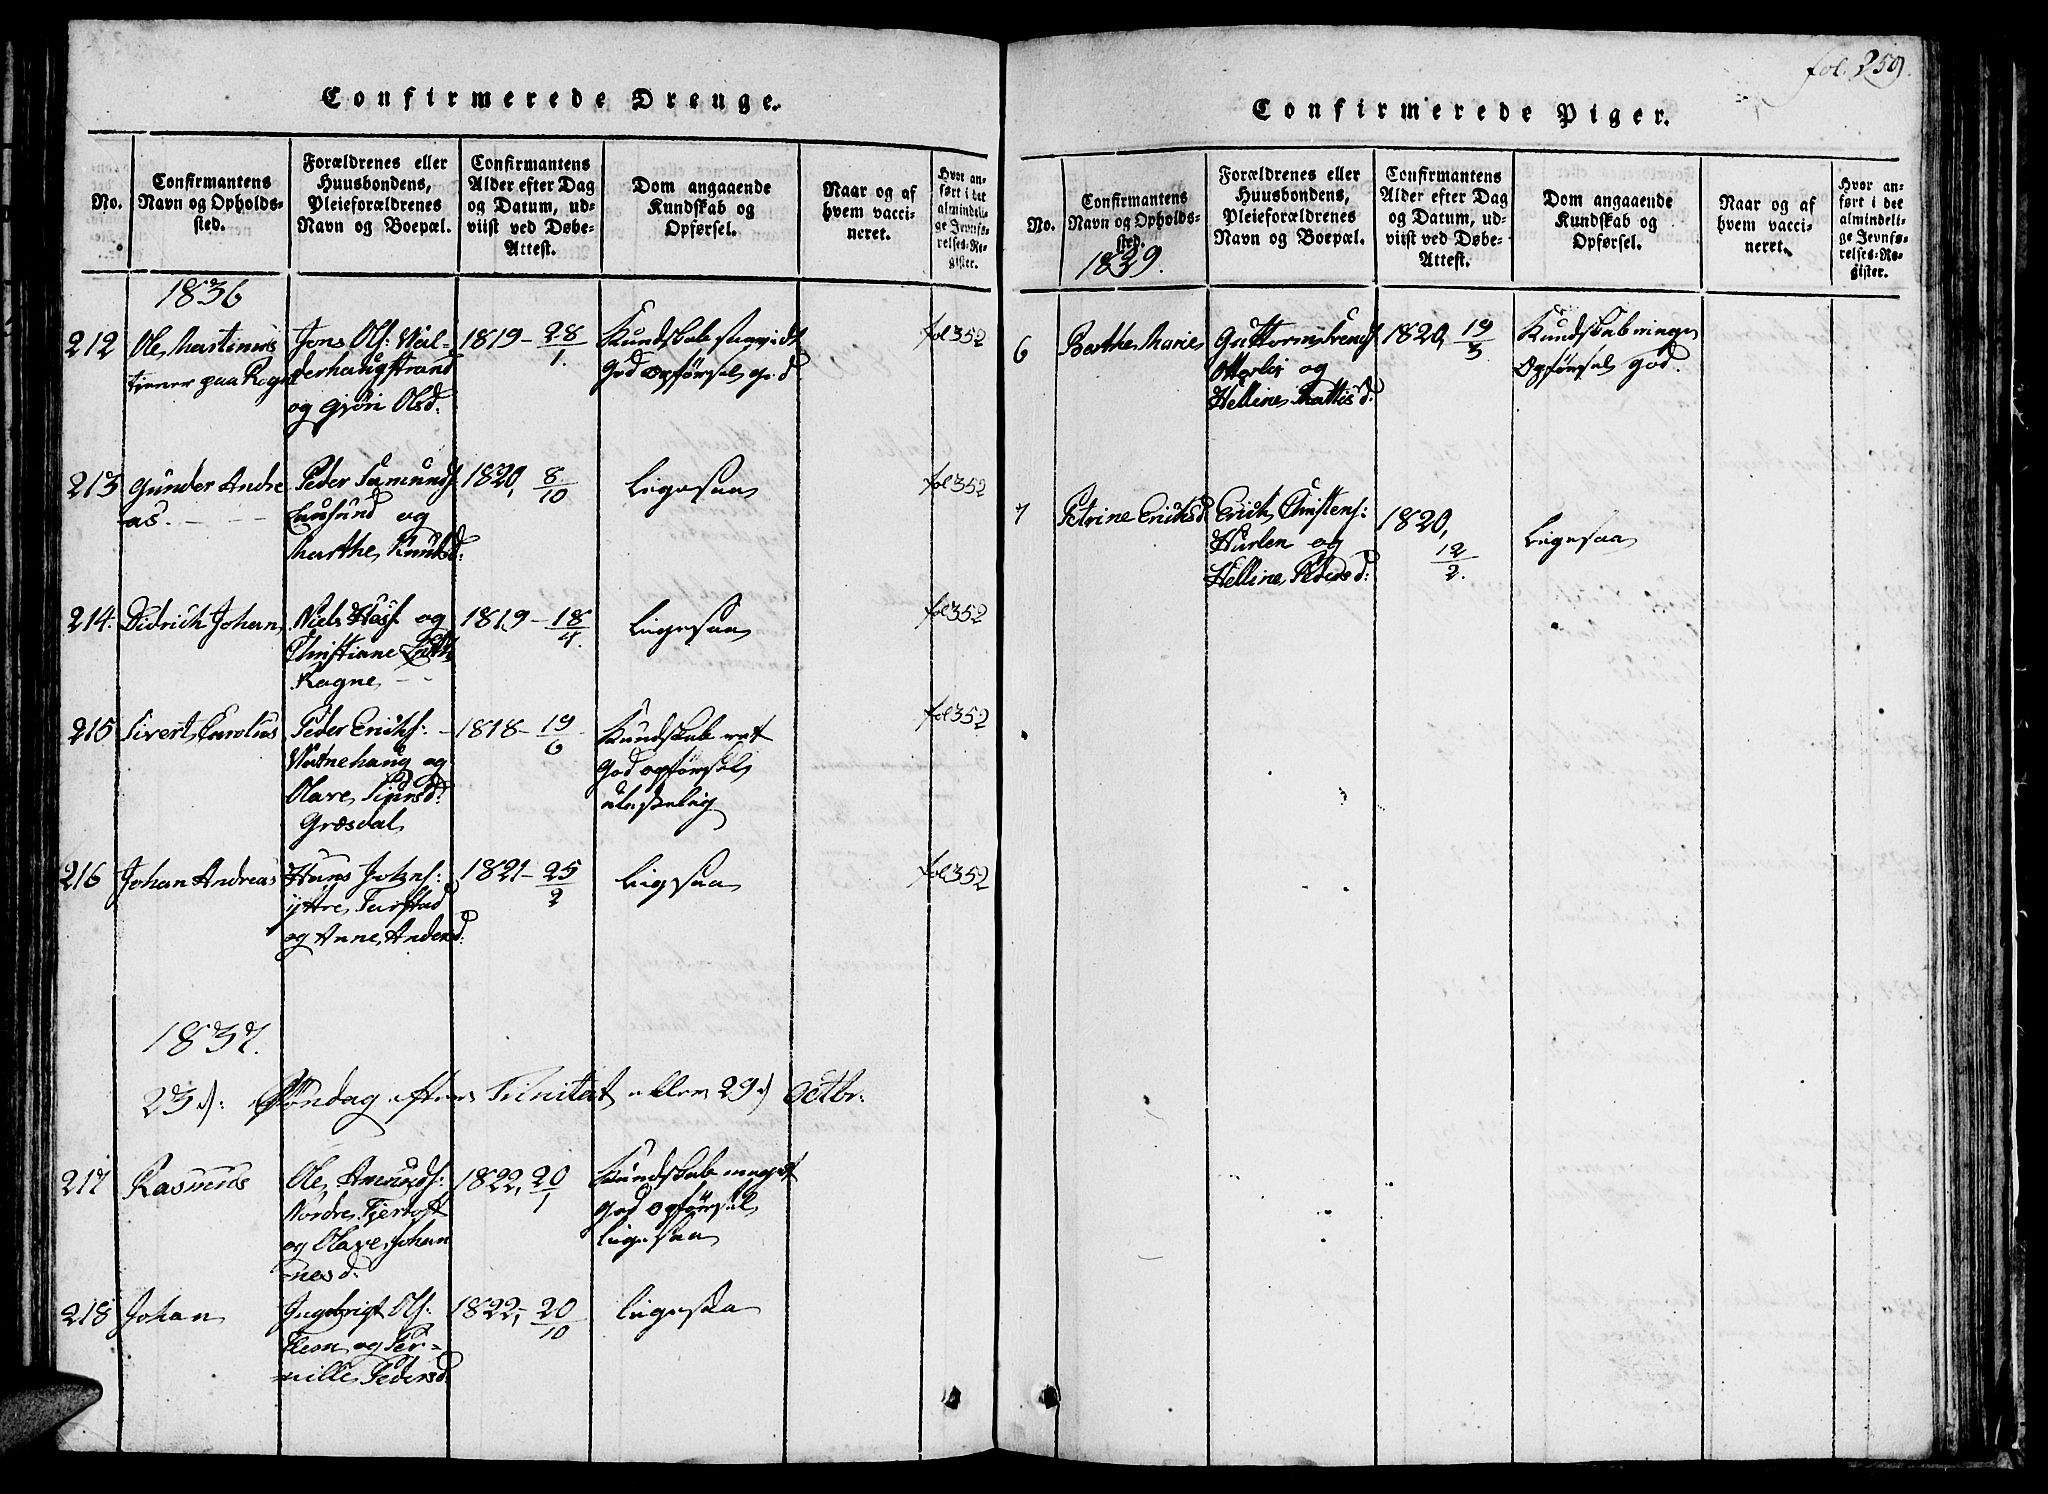 Confirmerede Drenge.
No.
Confirmantens
Navn og Opholds-
sted.
Forældrenes eller
Huusbondens,
Pleieforældrenes
Navn og Boepæl.
Confirmantens
Alder efter Dag
og Datum, ud-
viist ved Døbe-
Attest.
Dom angaaende
Kundskab og
Opførsel.
Naar og af
hvem vacci-
neret.
Hvor an-
ført i det
almindeli-
ge Jevnfø-
relses-Re-
gister.
1836
212
Ole Martinus
tiener paa
Jons Ols:
derhaugstrand
og Gjøri Olsd:
1819 - 28/1.
Kundskab
God opførsel god
fol 352
213
Gunder Andre
as. - -
Peder
og
Marthe Knudsd:
1820, 8/10
Ligesaa
fol 352
214.
Didrich Johan
Niels og
Christiane
Rogne - -
1819 - 18/4.
Ligesaa
fol 352
215
Sivert Carolus
Peder Erichs: -
Vatnehaug og
Olave Siursd:
Græsdal
1818 - 19/6
Kundskab
God opførsel
fol 352
216
Johan Andreas
Hans Johns:
yttre
og Anne Andersd:
1821 - 25/2
Ligesaa
fol 352
1837.
23d: Søndag efter Trinitat eller 29d Octbr:
217
Rasmus
Ole Amunds:
Nordre Fjertoft
og Olave Johan
nesd:
1822, 20/1
Kundskab meget
god opførsel
ligesaa
218
Johan
Ingebrigt Ols:
og Per-
nille Pedersd
1822, - 20/10
ligesaa
fol. 259.
Confirmerede Piger.
No.
Confirmantens
Navn og Opholds-
sted.
Forældrenes eller
Huusbondens,
Pleieforældrenes
Navn og Boepæl.
Confirmantens
Alder efter Dag
og Datum, ud-
viist ved Døbe-
Attest.
Dom angaaende
Kundskab og
Opførsel.
Naar og af
hvem vacci-
neret.
Hvor an-
ført i det
almindeli-
ge Jevnfø-
relses-Re-
gister.
1839.
6
Berthe Marie
Guttorm
Otterlei og
Helline Mattisd:
1820, 19/3
Kundskab
Opførsel god.
7
Petrine Erichsd
Erich Christens:
Hurlen og
Helline Pedersd:
1820,
12/2.
Ligesaa